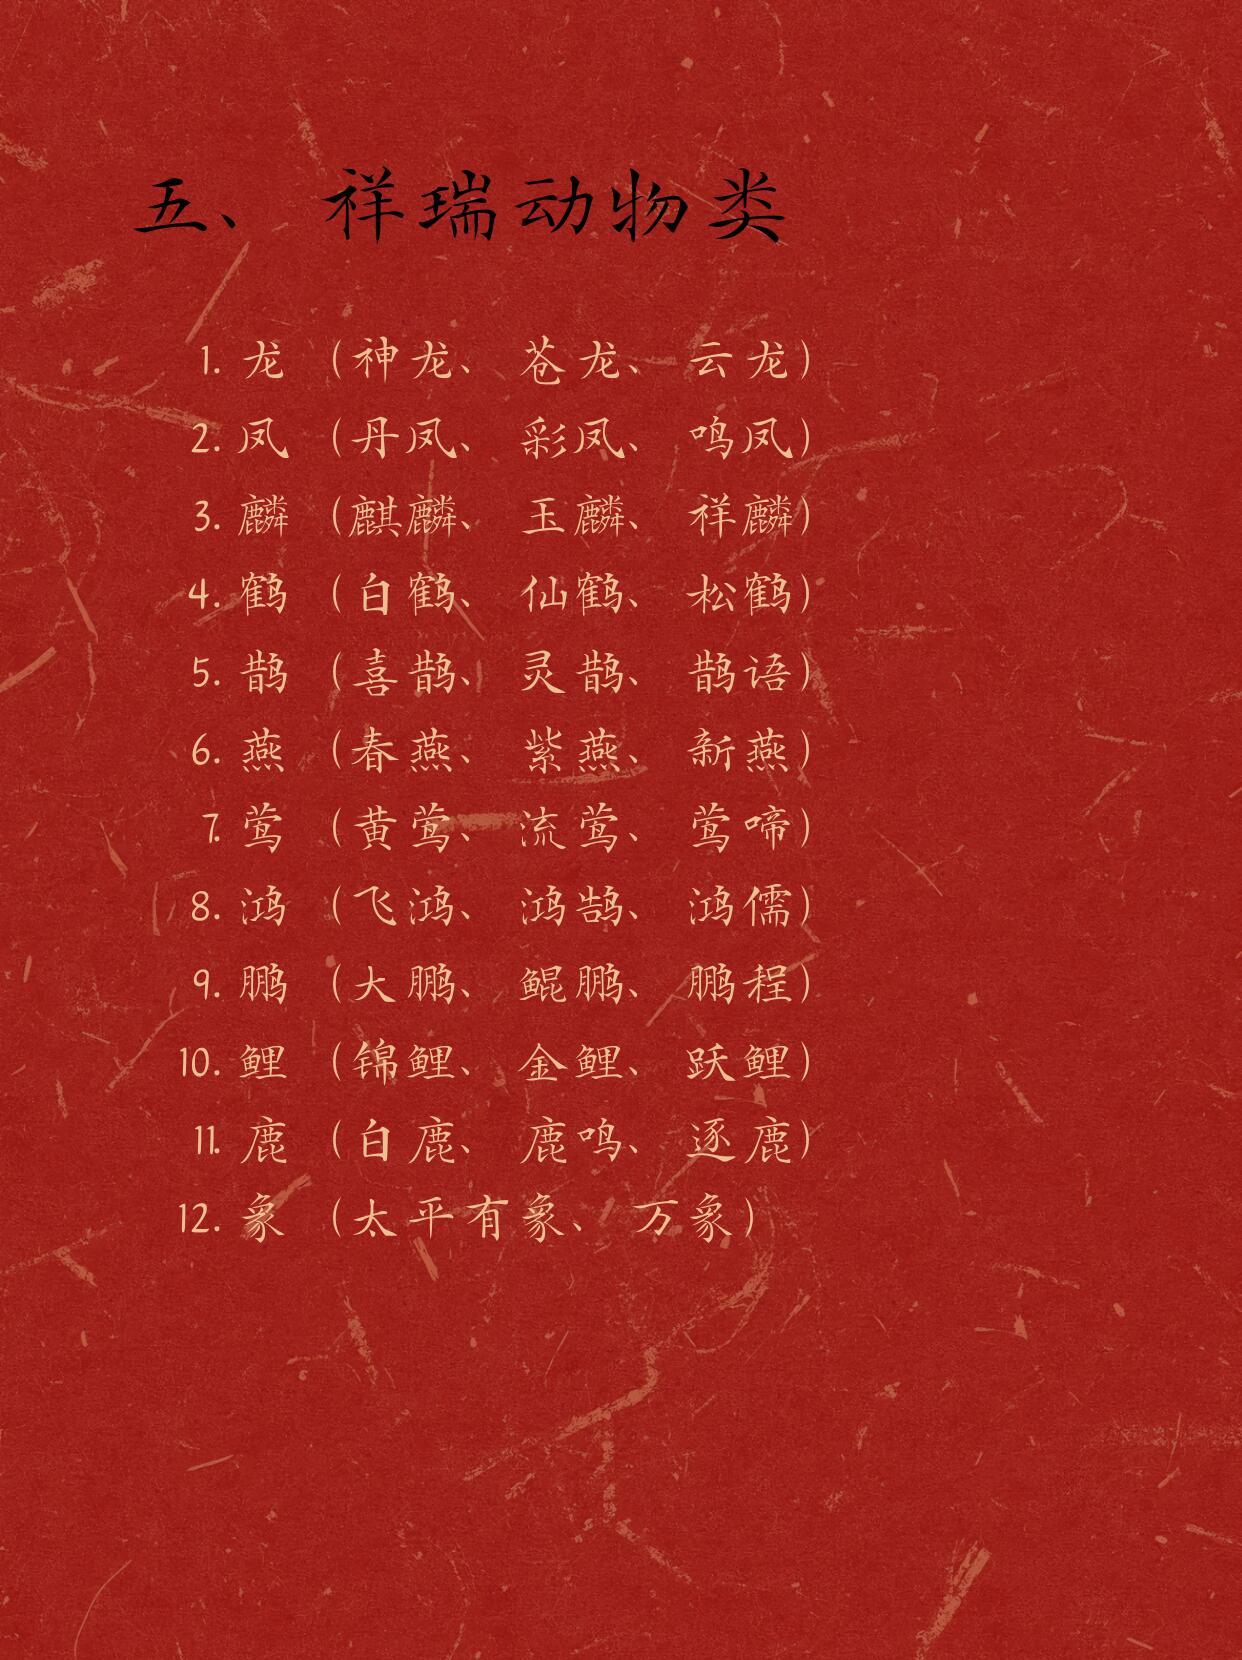 五、 祥瑞动物类
1. 龙 (神龙、 苍龙、 云龙)
2. 凤 (丹凤、 彩凤、 鸣凤)
3. 麟 (麒麟、 玉麟、 祥麟)
4. 鹤 (白鹤、 仙鹤、 松鹤)
5. 鹊 (喜鹊、 灵鹊、 鹊语)
6. 燕 (春燕、 紫燕、 新燕)
7. 莺 (黄莺、 流莺、 莺啼)
8. 鸿 (飞鸿、 鸿鹄、 鸿儒)
9. 鹏 (大鹏、 鲲鹏、 鹏程)
10. 鲤 (锦鲤、 金鲤、 跃鲤)
11. 鹿 (白鹿、 鹿鸣、 逐鹿)
12. 象 (太平有象、 万象)